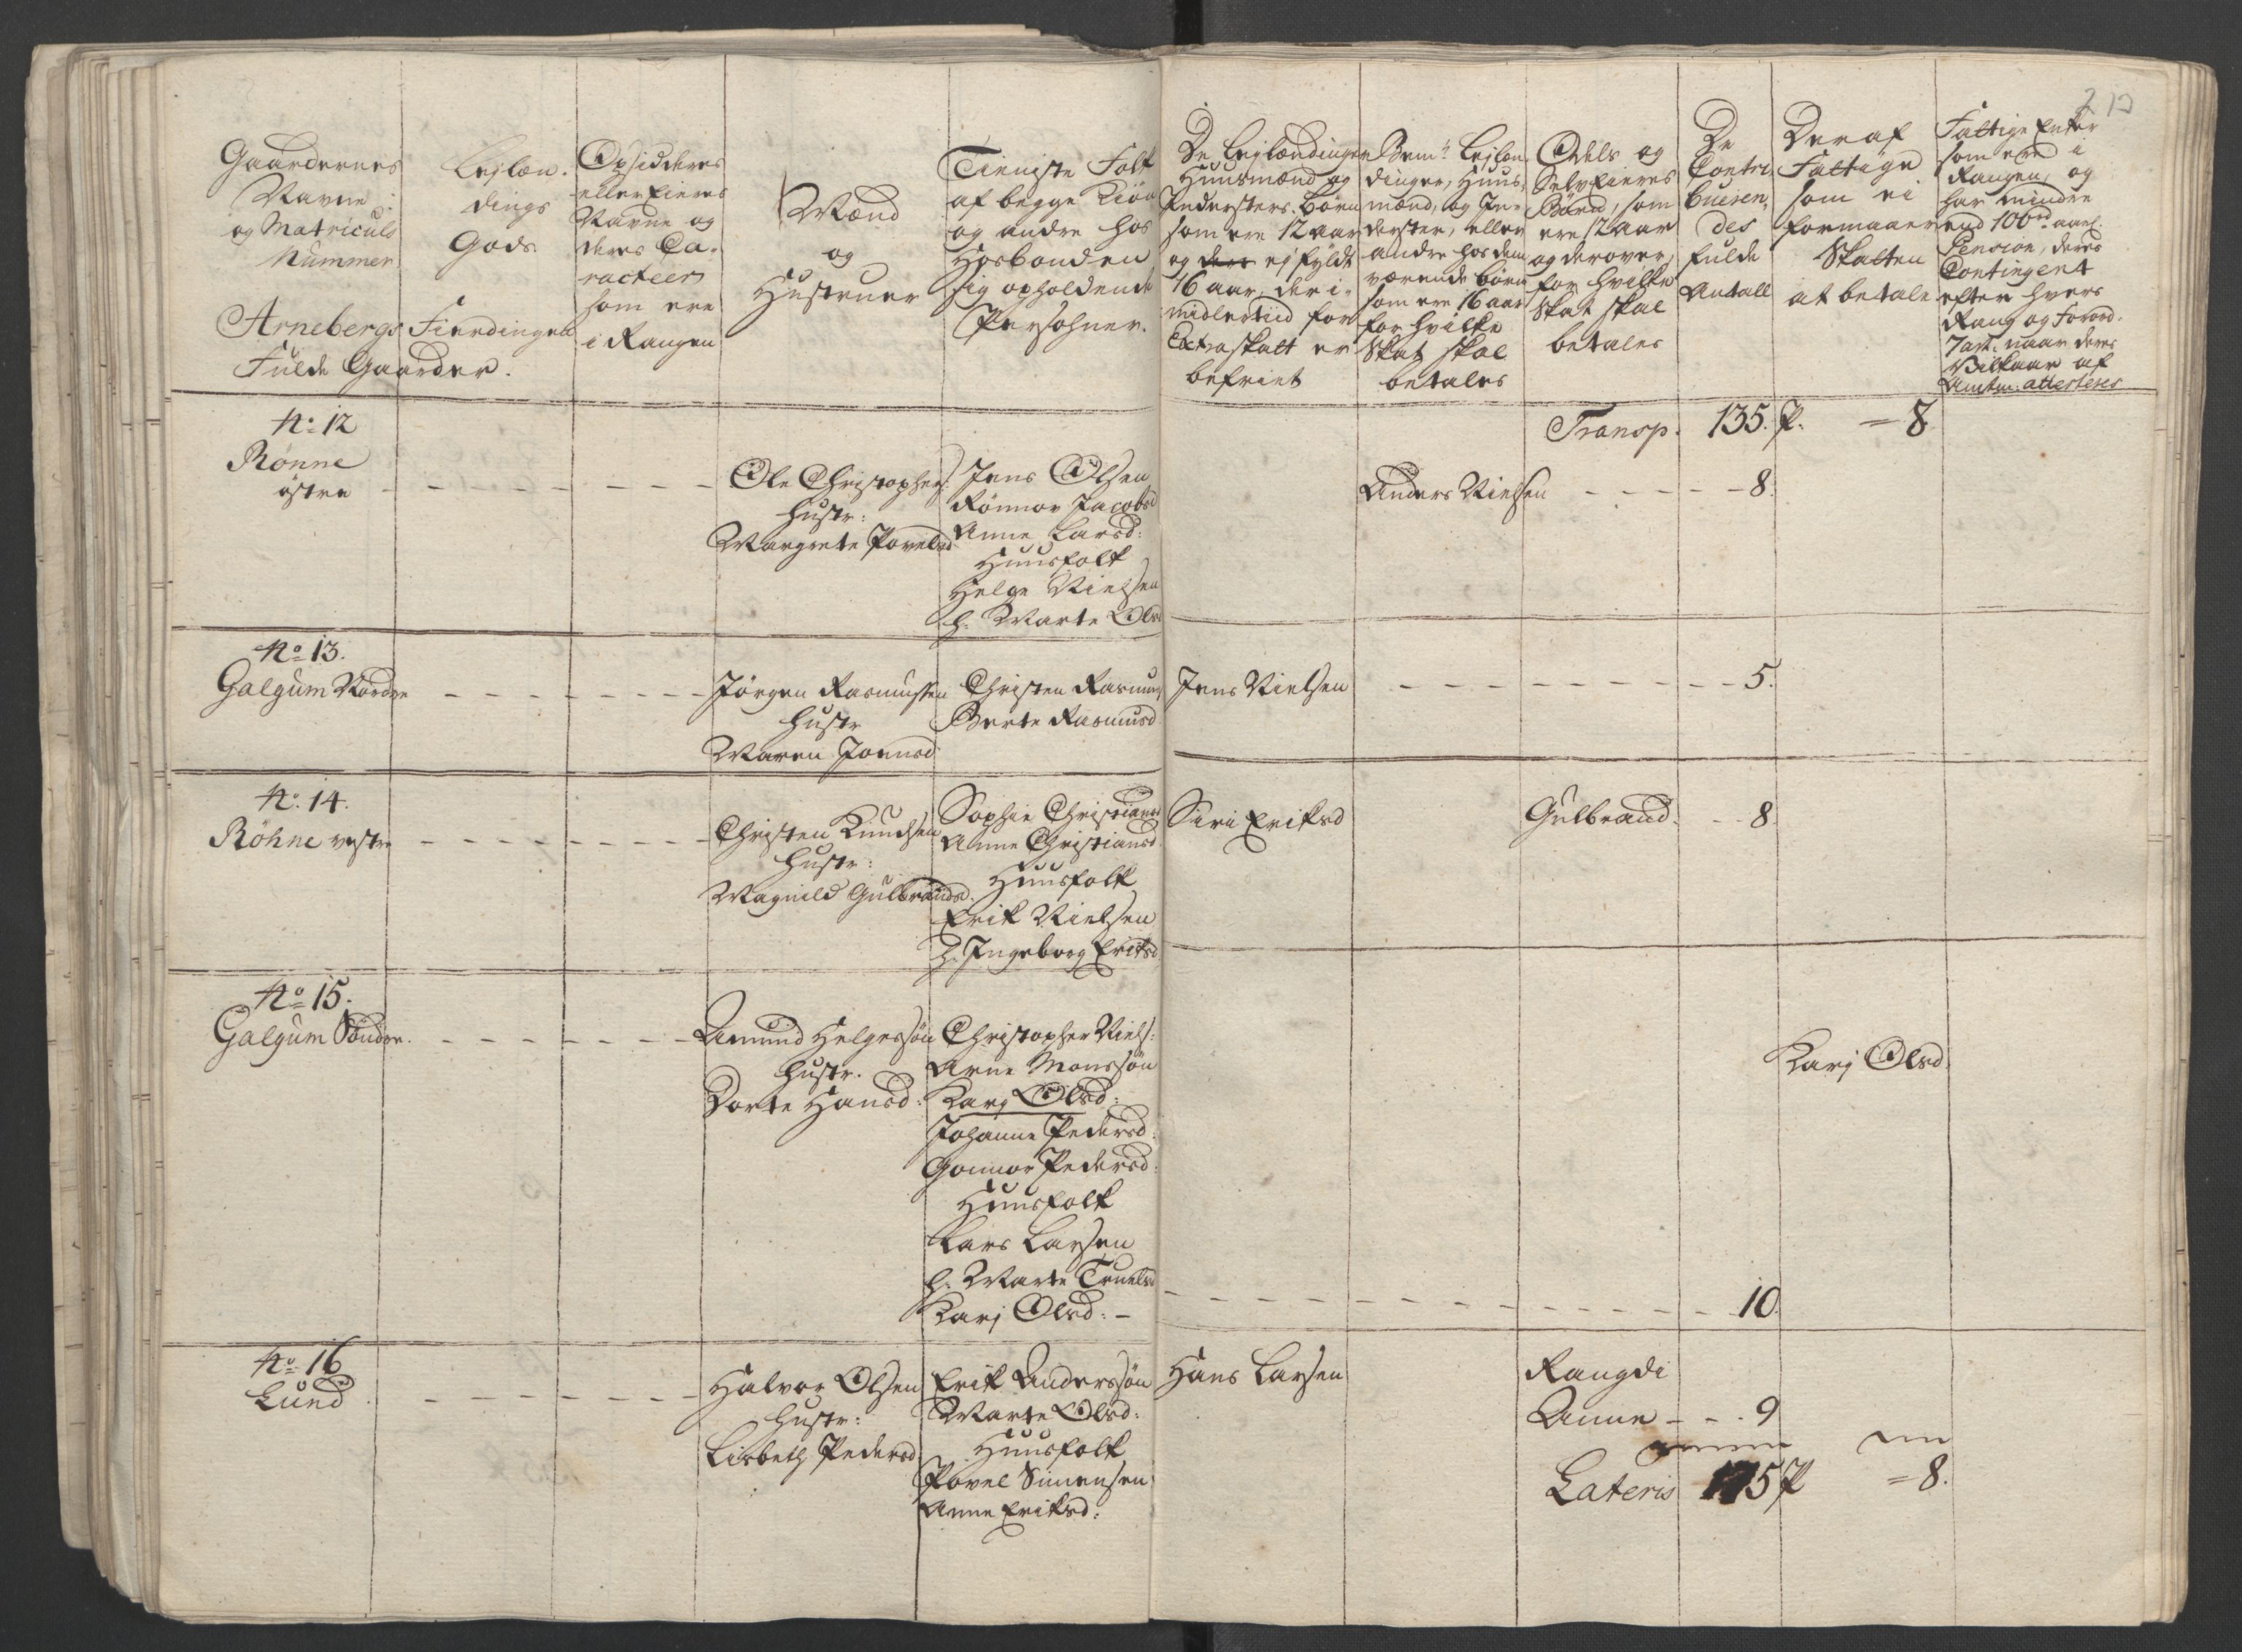 213
Gaardernes
Navne
og Matriculs
Nummer
Lejlæn-
dings
Gods
Opsidderes
eller Eieres
Navne og
deres Ca-
racteer
som ere
i Rangen
Mænd
og
Hustruer
Tieniste Folk
af begge Kiøn
og andre hos
Hosbonden
sig opholdende
Persohner.
De Lejlændinger
Huusmænd og
Indersters Børn
som ere 12 aar
og ej fyldt
16 aar, der i-
midlertiid for
Extraskatt er
befriet
Bemte Lejlæn-
dinger, Huus-
mænd, og In-
derster, eller
andre hos dem
værende børn
som ere 16 aar
for hvilke
Skat skal
betales
Odels og
Selveieres
Børn, som
ere 12 aar
og derover,
for hvilke
Skat skal
betales
De
Contri-
buiren-
des
fulde
Antall
Deraf
Fattige
som ei
formaaer
Skatten
at betale
Fattige Enker
som ere i
Rangen, og
har mindre
end 100 rd aarl.
Pension, deres
Contingent
efter hvers
Rang og Forord:
7 art. naar deres
Vilkaar af
Amtm: attesteres
Arnebergs Fierdingen
Fulde Gaarder.
Transp. 135. P. = 8
No 12
Rønne
østre - - - - - - - -
Ole Christophers:
Hustr:
Margrete Povelsd
Jens Olsen
Rønnov Jacobsd
Anne Larsd:
Huusfolk
Helge Nielsen
h. Marte Olsd
Anders Nielsen - - - - - 8.
No 13.
Galgum Nordre - - - - - - - -
Jørgen Rasmussen
Hustr
Maren Joensd
Christen Rasmus
Berte Rasmusd
Jens Nielsen - - - - - - - - - 5.
No. 14.
Røhne vestre - - - - - - - - -
Christen Knudsen
Hustr:
Magnild Gulbrandsd.
Sophie Christiansd
Anne Christiansd
Huusfolk
Erik Nielsen
h. Ingeborg Eriksd
Siri Eriksd
Gulbrand. - - 8.
No 15.
Galgum Søndre. - - - - - - -
Amund Helgessøn
Hustr.
Dorte Hansd:
Christopher Niels:
Arne Monssøn
Karj Olsd:
Johanne Pedersd:
Gonnor Pedersd:
Huusfolk
Lars Larsen
h. Marte Truelsd
Karj Olsd: -
- - - - - - - - - - - - - 10.
Karj Olsd.
No 16
Lund - - - - - -
Halvor Olsen
Hustr:
Lisbeth Pedersd
Erik Anderssøn
Marte Olsd:
Huusfolk
Povel Simensen
Anne Eriksd:
Hans Larsen
Rangdi
Anne - - . 9
Lateris 175 P = 8.